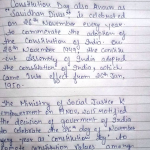 Constitution Day also known as
Samvidhan Diwas' is celebrated
on 26th November every year
to commemorate the adoption of
the Constitution of India. On
26th November 1949, the
Assembly of India adopted
the Constitution of India, which
came into effect from 26th Jan,
1950.
The Ministry of Social Justice &
Empowerment on Nov, notified
the decision of government of India
to celebrate the 26th day of November
every year as 'Constitution Day' to
constitution values among